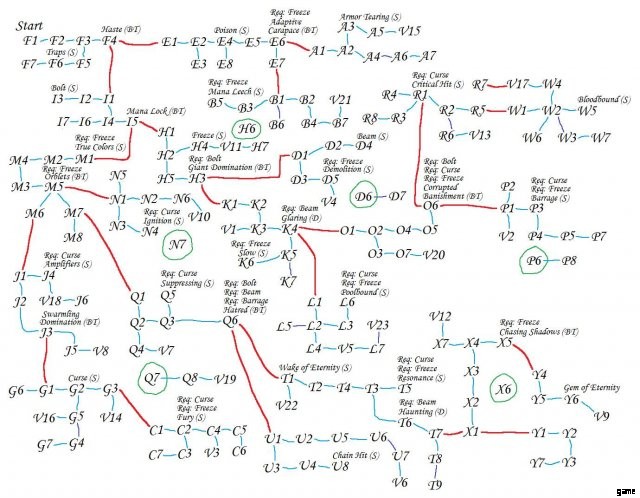 Start
F1 F2 F3 F4
Haste (BT)
Traps (S)
F7 F6 F5
E1 E2 E4 E5 E6
E3 E7
Poison (S)
Req: Freeze
Adaptive
Carapace (BT)
Armor Tearing (S)
A1 A2 A3 A5 V15
A4 A6 A7
Bolt (S)
I3 I2 I1
I7 I6 I4 I5
Mana Lock (BT)
Req: Freeze
True Colors (S)
Req: Freeze
Mana Leech (S)
B5 B3 B1 B2 V21
B6 B4 B7
H6
H1
Freeze (S)
H2 H4 V11 H7
Req: Bolt
Giant Domination (BT)
H5 H3
Beam (S)
D1 D2 D4
Req: Freeze
Demolition (S)
D3 D5
V4
D6 D7
Req: Curse
Critical Hit (S)
R4 R1 R7 V17 W4
R8 R3 R2 R5 W1 W2 W5
R6 V13 W6 W3 W7
Bloodbound (S)
M4 M2 M1
Req: Freeze
Orblets (BT)
M3 M5
M6 M7
M8
N5
N1 N2 N6
V10
N3 N4
Req: Curse
Ignition (S)
N7
K1 K2
Req: Beam
Glaring (D)
V1 K3 K4
Req: Freeze
Slow (S)
K6 K5
K7
O1 O2 O4 O5
O3 O7 V20
Req: Bolt
Req: Curse
Req: Freeze
Corrupted
Banishment (BT)
O6
P2
P1 P3
V2 P4 P5 P7
Req: Curse
Req: Freeze
Barrage (S)
P6 P8
Req: Curse
Amplifiers (S)
J1 J4
J2 V18 J6
Swarmling
Domination (BT)
J3
J5 V8
Req: Curse
Suppressing (S)
Q1 Q5
Q2 Q3
Q4 V7
Req: Bolt
Req: Beam
Req: Barrage
Hatred (BT)
Q6
Q7 Q8 V19
Req: Curse
Req: Freeze
Poolbound (S)
L1 L6
L5 L2 L3 V23
L4 V5 L7
V12
X7 X4 X5
X3
X2
X1
Req: Freeze
Chasing Shadows (BT)
X6
Y4
Y5 Y6
V9
Gem of Eternity
Y1 Y2
Y7 Y3
Wake of Eternity (S)
T1 T2 T4 T3 T5
V22
Req: Curse
Req: Freeze
Resonance (S)
Req: Beam
Haunting (D)
T6 T7
T8
T9
Curse (S)
G6 G1 G2 G3
V16 G5 V14
G7 G4
Req: Curse
Req: Freeze
Fury (S)
C1 C2 C4 C5
C7 C3 V3 C6
U1 U2 U5 U6
U3 U4 U8 U7
V6
Chain Hit (S)
game